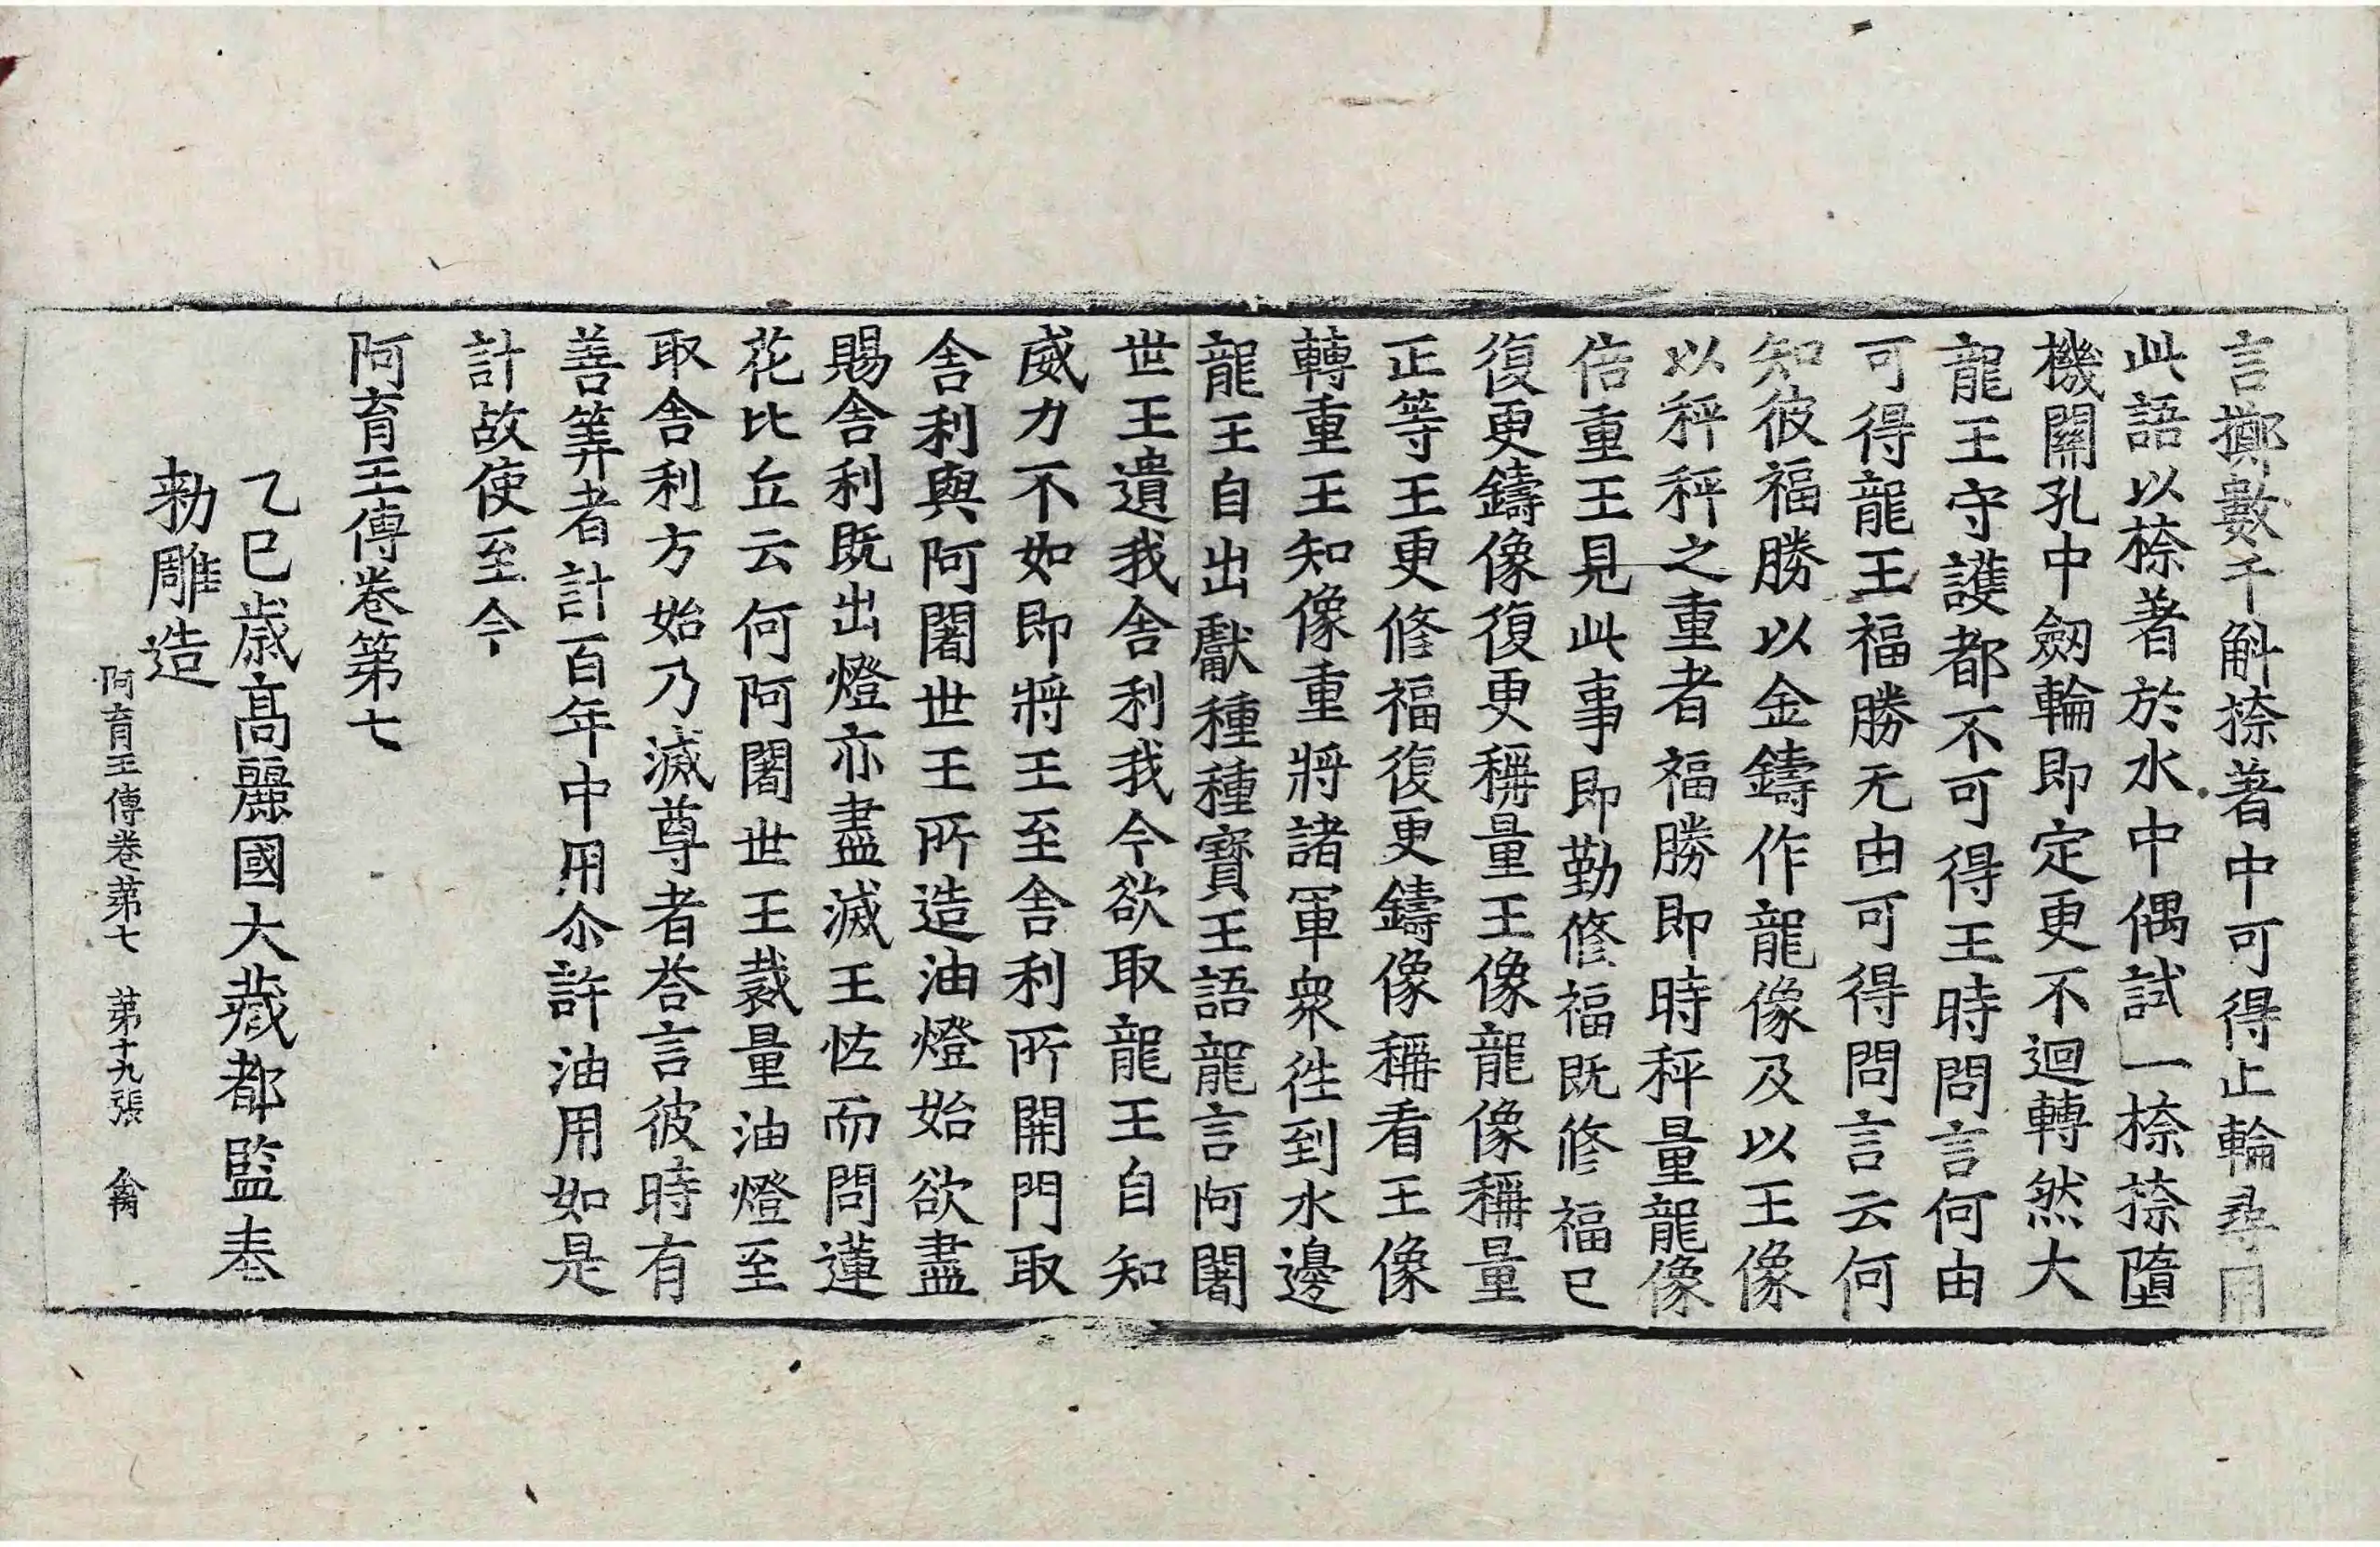 言擲數千斛㮈著中可得止輪尋用
此語以㮈著於水中偶試一㮈㮈墮
機關孔中劒輪即定更不迴轉然大
龍王守護都不可得王時問言何由
可得龍王福勝无由可得問言云何
知彼福勝以金鑄作龍像及以王像
以秤秤之重者福勝即時秤量龍像
倍重王見此事即勤修福既修福已
復更鑄像復更稱量王像龍像稱量
正等王更修福復更鑄像稱看王像
轉重王知像重將諸軍衆往到水邊
龍王自出獻種種寶王語龍言阿闍
世王遺我舍利我今欲取龍王自知
威力不如即將王至舍利所開門取
舍利與阿闍世王所造油燈始欲盡
賜舍利既出燈亦盡滅王怪而問蓮
花比丘云何阿闍世王裁量油燈至
取舍利方始乃滅尊者荅言彼時有
善筭者計百年中用尒許油用如是
計故使至今
阿育王傳卷第七
乙巳歲高麗國大藏都監奉
勑雕造
阿育王傳卷第七 第十九張 禽